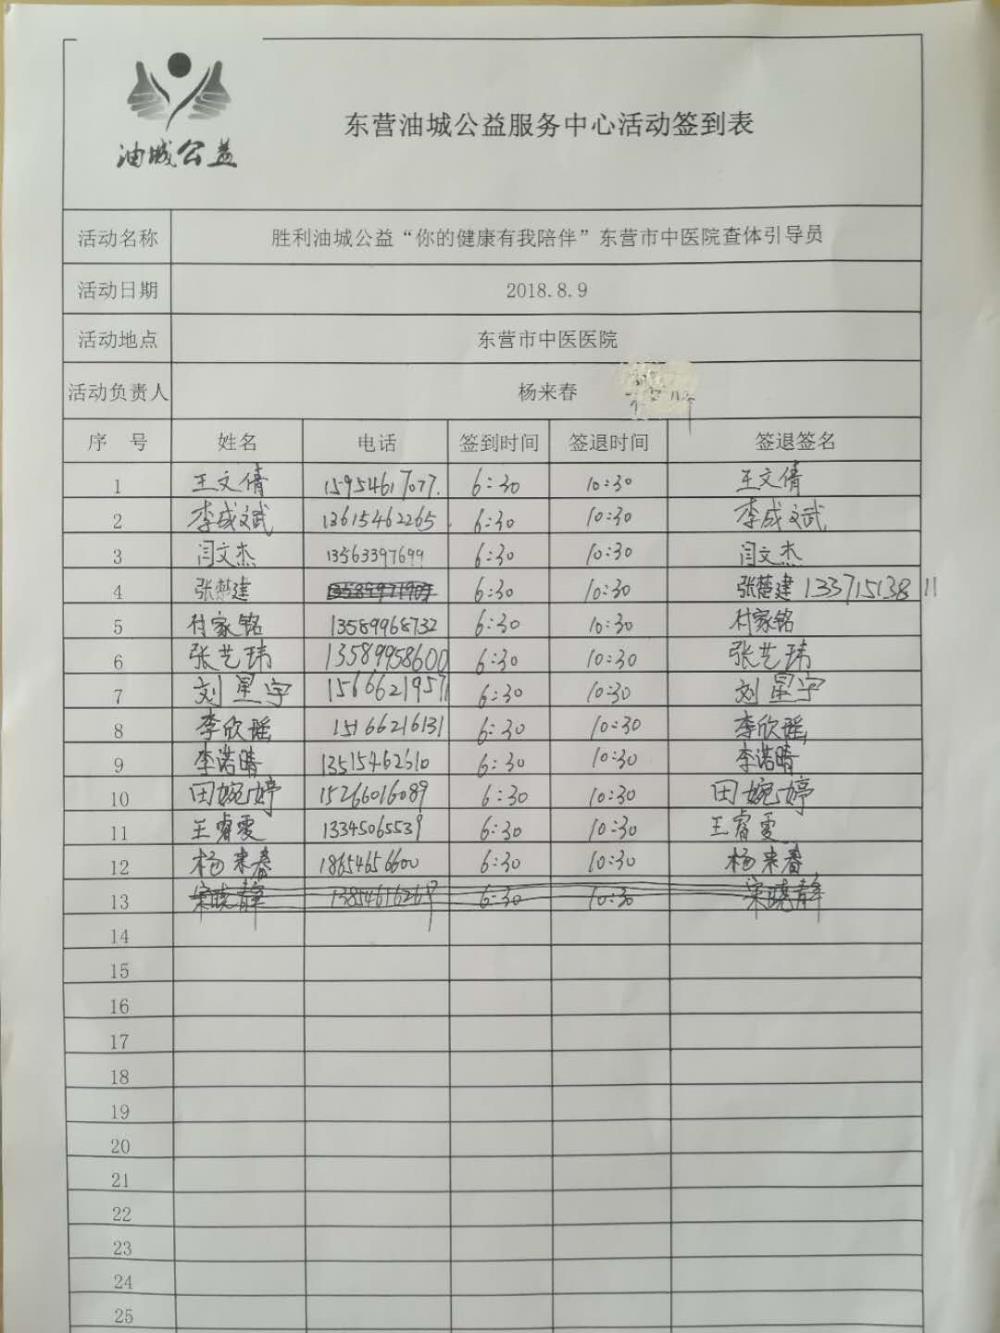 油城公益
东营油城公益服务中心活动签到表
活动名称 胜利油城公益“你的健康有我陪伴”东营市中医院查体引导员
活动日期 2018.8.9
活动地点 东营市中医医院
活动负责人 杨来春
序 号 姓名 电话 签到时间 签退时间 签退签名
1 王文倩 15954617077. 6:30 10:30 王文倩
2 李成斌 13615462265. 6:30 10:30 李成斌
3 闫文杰 13563397699 6:30 10:30 闫文杰
4 张楚建 6:30 10:30 张楚建 13371513811
5 付家铭 13589968732 6:30 10:30 付家铭
6 张艺玮 13589958600 6:30 10:30 张艺玮
7 刘星宇 15666219571 6:30 10:30 刘星宇
8 李欣瑶 15166216131 6:30 10:30 李欣瑶
9 李诺晴 13515462610 6:30 10:30 李诺晴
10 田婉婷 15266016089 6:30 10:30 田婉婷
11 王睿雯 13345065539 6:30 10:30 王睿雯
12 杨来春 18654656600 6:30 10:30 杨来春
13 宋晓静 13854616269 6:30 10:30 宋晓静
14
15
16
17
18
19
20
21
22
23
24
25